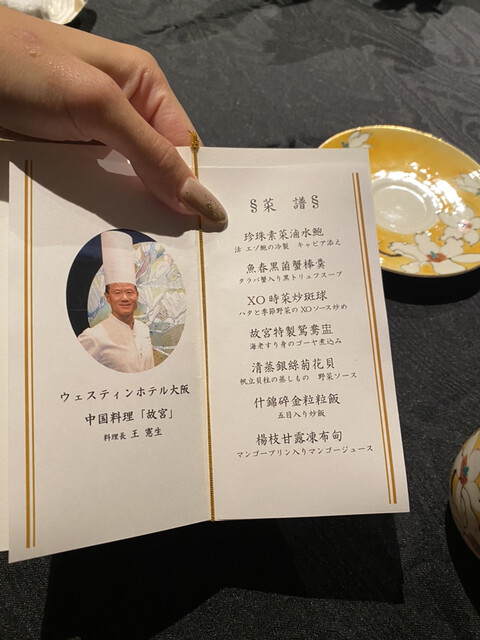 ウェスティンホテル大阪
中国料理「故宮」
料理長 王 憲生
§ 菜 譜 §
珍珠素菜滷水鮑
法 エゾ鮑の冷製 キャビア添え
魚春黒菌蟹棒羹
タラバ蟹入り黒トリュフスープ
XO時菜炒斑球
ハタと季節野菜のXOソース炒め
故宮特製鴛鴦盅
海老すり身のゴーヤ煮込み
清蒸銀絲菊花貝
帆立貝柱の蒸しもの 野菜ソース
什錦碎金粒粒飯
五目入り炒飯
楊枝甘露凍布甸
マンゴープリン入りマンゴージュース